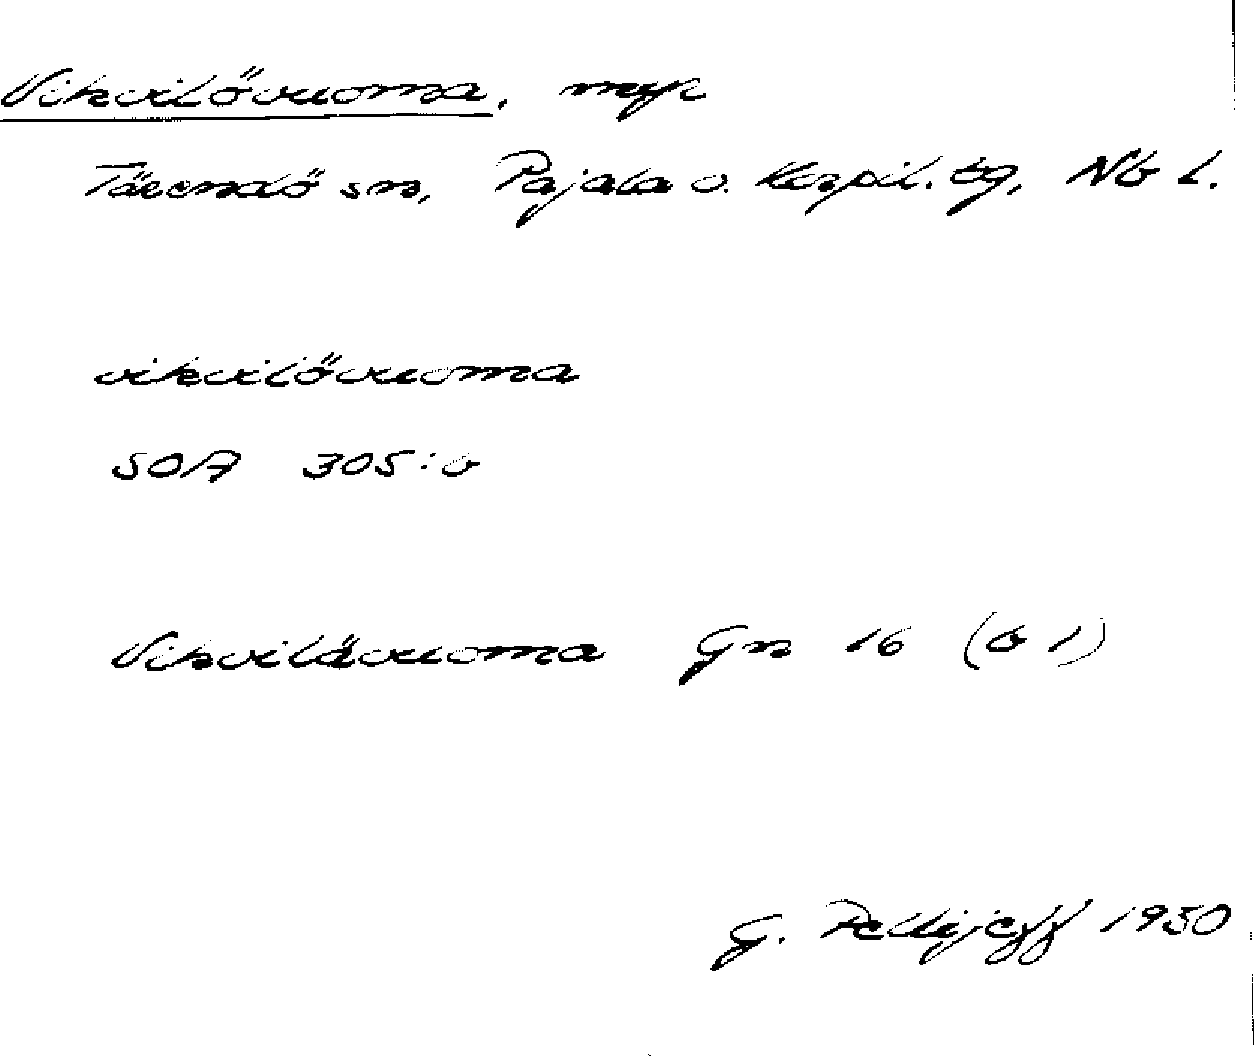 Vikvilövuoma, myr
Tärendö sn, Pajala o. Korpil. tg, Nb l.
vikvilövuoma
SOA 305:6
Vikvilävuoma Gn 16 (b 1)
G. Pellijeff 1950